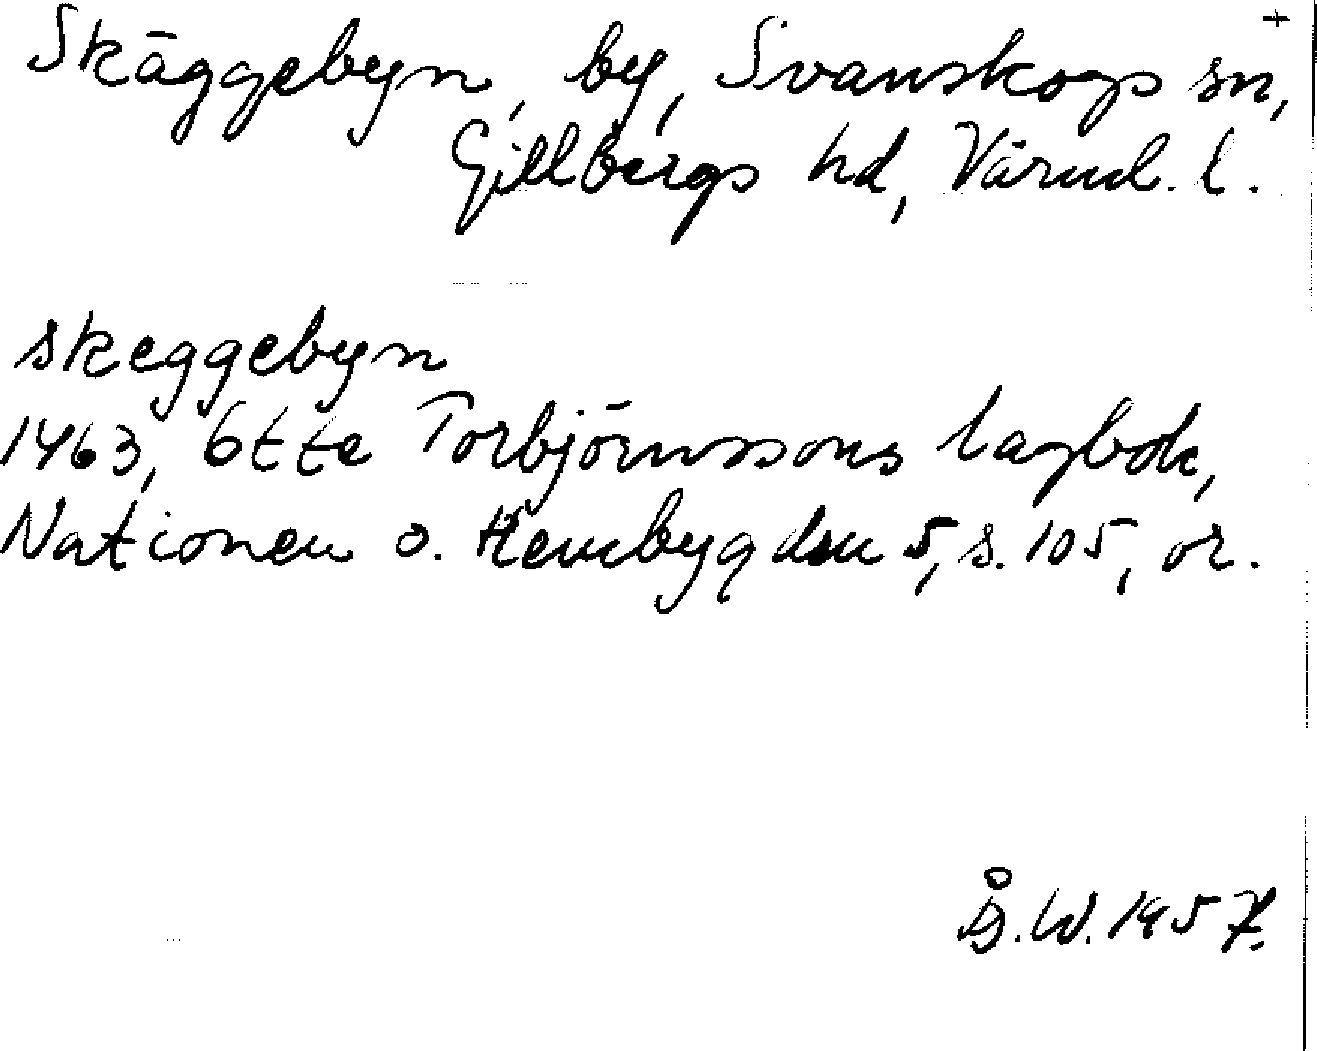 +
Skäggebyn, by, Svanskogs sn,
Gillbergs hd, Värml. l.
skeggebyn
1463, Otte Torbjörnssons lagbok,
Nationen o. Hembygden 5, s. 105, or.
Å.W. 1957.